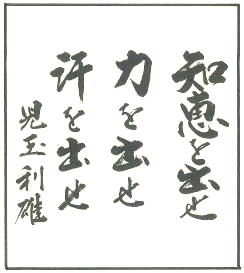 知恵を出せ
力を出せ
汗を出せ
児玉利雄